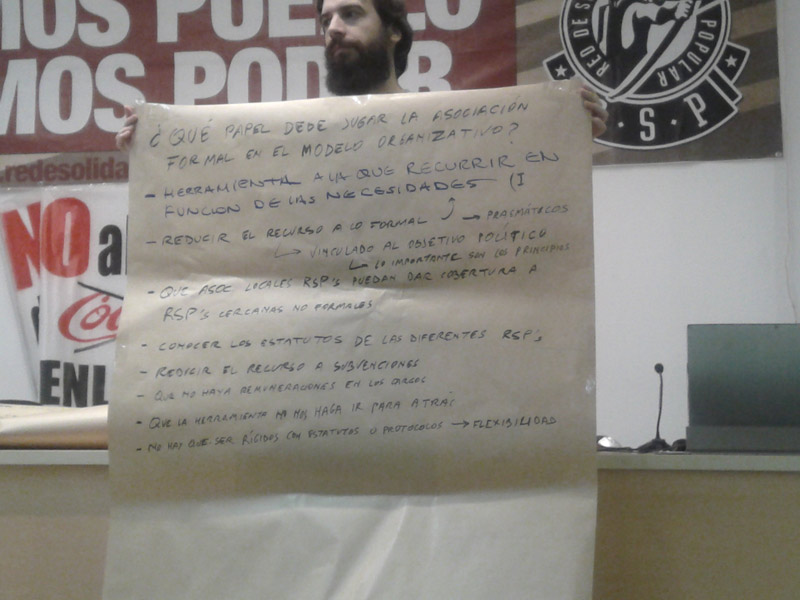 MOS PUEBLO
MOS PODER
.redesolida
RED DE S
POPULAR
R.S.P
NO al
ENL
¿QUÉ PAPEL DEBE JUGAR LA ASOCIACIÓN
FORMAL EN EL MODELO ORGANIZATIVO?
- HERRAMIENTA A LA QUE RECURRIR EN
FUNCIÓN DE LAS NECESIDADES (I
- REDUCIR EL RECURSO A LO FORMAL → PRAGMÁTICOS
↳ VINCULADO AL OBJETIVO POLÍTICO
↳ LO IMPORTANTE SON LOS PRINCIPIOS
- QUE ASOC LOCALES RSP'S PUEDAN DAR COBERTURA A
RSP'S CERCANAS NO FORMALES
- CONOCER LOS ESTATUTOS DE LAS DIFERENTES RSP'S
- REDUCIR EL RECURSO A SUBVENCIONES
- QUE NO HAYA REMUNERACIONES EN LOS CARGOS
- QUE LA HERRAMIENTA NO NOS HAGA IR PARA ATRÁS
- NO HAY QUE SER RÍGIDOS CON ESTATUTOS O PROTOCOLOS → FLEXIBILIDAD